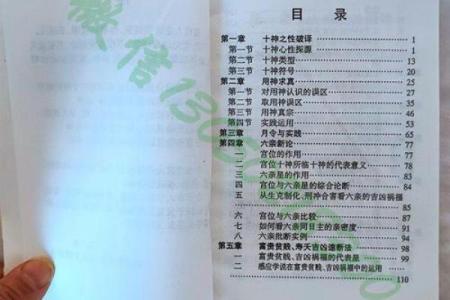 目 录
第一章 十神之性破译 1
第一节 十神心性探源 1
第二节 十神类型 13
第三节 十神符号 20
第二章 用神求真 25
第一节 对用神认识的误区 27
第二节 取用神误区 35
第三节 用神真宗 45
第四节 实践运用 53
第三章 月令与实践 65
第四章 六亲新论 77
一 宫位的作用 77
二 宫位十神所临十神的代表意义
三 六亲星的作用 84
四 宫位与六亲星的综合论断 84
五 从生克制化、刑冲合害看六亲的吉凶祸福
85
六 宫位与六亲比较 87
七 如何看六亲同日主的亲密度 91
八 六亲批断实例 94
第五章 富贵贫贱、寿夭吉凶道断法 98
一 富贵贫贱、吉凶祸福的代表是 99
二 感应学说在富贵贫贱、吉凶祸福中的运用
110
微信